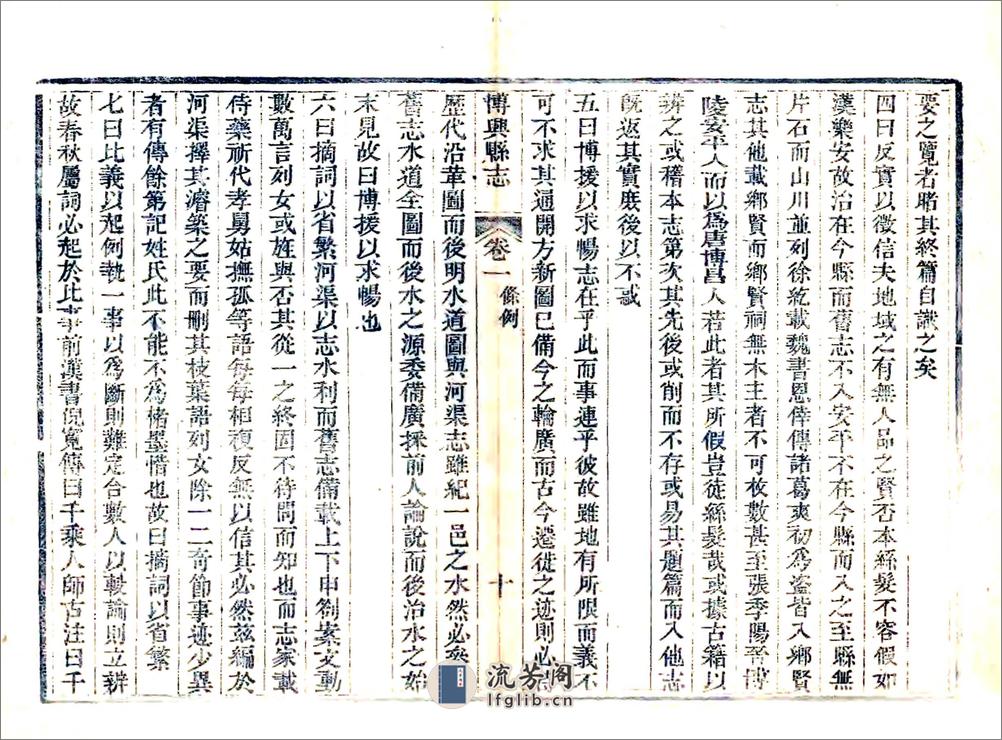 要之覽者賭其終篇自識之矣
四曰反實以徵信夫地域之有無人品之賢否本絲髮不容假如
漢樂安故治在今縣而舊志不入安平不在今縣而入之至縣無
片石而山川並列徐紇載魏書恩倖傳諸葛爽初為盜皆入鄉賢
志其他載鄉賢而鄉賢祠無木主者不可枚數甚至張季陽晉博
陵安平人而以為唐博昌人若此者其所假豈徒絲髮哉或據古籍以
辨之或稽本志第次其先後或削而不存或易其題篇而入他志
旣返其實庶後以不惑
五曰博援以求暢志在乎此而事連乎彼故雖地有所限而義不
可不求其通開方新圖已備今之輪廣而古今遷徙之迹則必
博興縣志
卷一
條例
十
歷代沿革圖而後明水道圖與河渠志雖紀一邑之水然必
舊志水道全圖而後水之源委備廣採前人論說而後治水之始
末見故曰博援以求暢也
六曰摘詞以省繁河渠以志水利而舊志備載上下申劄案文動
數萬言列女或旌與否其從一之終固不待問而知也而志家載
侍藥祈代孝舅姑撫孤等語每每相複反無以信其必然茲編於
河渠擇其濬築之要而刪其枝葉語列女除一二奇節事迹少異
者有傳餘第記姓氏此不能不為楮墨惜也故曰摘詞以省繁
七曰比義以起例執一事以為斷則難定合數人以轂論則立辨
故春秋屬詞必起於比事前漢書倪寬傳曰千乘人師古注曰千
流芳阁
lfglib.cn